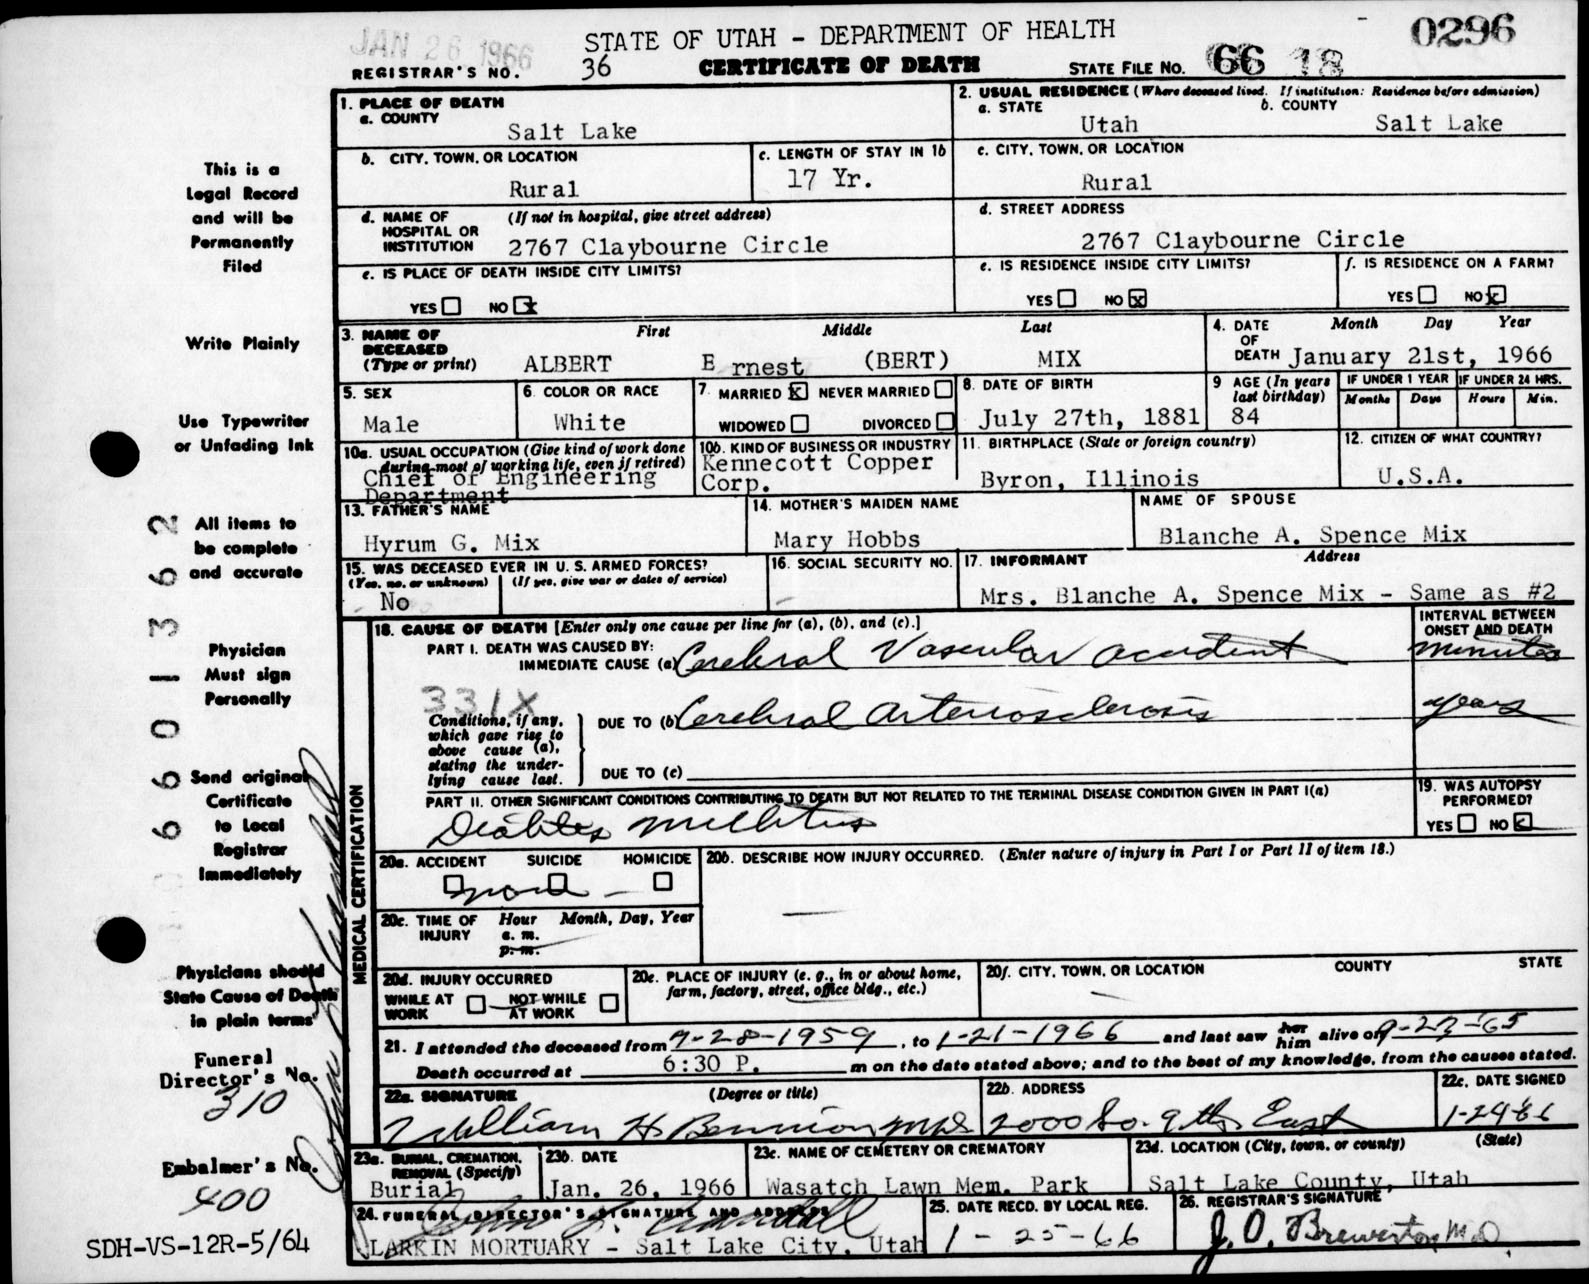 JAN 26 1966
STATE OF UTAH - DEPARTMENT OF HEALTH
0296
REGISTRAR'S NO. 36
CERTIFICATE OF DEATH
STATE FILE NO. 66 18
This is a
Legal Record
and will be
Permanently
Filed
Write Plainly
Use Typewriter
or Unfading Ink
All items to
be complete
and accurate
Physician
Must sign
Personally
Send original
Certificate
to Local
Registrar
Immediately
Physicians should
State Cause of Death
in plain terms
Funeral
Director's No.
310
Embalmer's No.
400
SDH-VS-12R-5/64
660 13662
1. PLACE OF DEATH
a. COUNTY
Salt Lake
2. USUAL RESIDENCE (Where deceased lived. If institution: Residence before admission)
a. STATE b. COUNTY
Utah Salt Lake
b. CITY, TOWN, OR LOCATION
Rural
c. LENGTH OF STAY IN 1b
17 Yr.
c. CITY, TOWN, OR LOCATION
Rural
d. NAME OF (If not in hospital, give street address)
HOSPITAL OR
INSTITUTION 2767 Claybourne Circle
d. STREET ADDRESS
2767 Claybourne Circle
e. IS PLACE OF DEATH INSIDE CITY LIMITS?
YES NO x
e. IS RESIDENCE INSIDE CITY LIMITS?
YES NO x
f. IS RESIDENCE ON A FARM?
YES NO x
3. NAME OF First Middle Last
DECEASED
(Type or print) ALBERT Ernest (BERT) MIX
4. DATE Month Day Year
OF
DEATH January 21st, 1966
5. SEX
Male
6. COLOR OR RACE
White
7. MARRIED x NEVER MARRIED
WIDOWED DIVORCED
8. DATE OF BIRTH
July 27th, 1881
9 AGE (In years
last birthday)
84
IF UNDER 1 YEAR IF UNDER 24 HRS.
Months Days Hours Min.
10a. USUAL OCCUPATION (Give kind of work done
during most of working life, even if retired)
Chief of Engineering
Department
10b. KIND OF BUSINESS OR INDUSTRY
Kennecott Copper
Corp.
11. BIRTHPLACE (State or foreign country)
Byron, Illinois
12. CITIZEN OF WHAT COUNTRY?
U.S.A.
13. FATHER'S NAME
Hyrum G. Mix
14. MOTHER'S MAIDEN NAME
Mary Hobbs
NAME OF SPOUSE
Blanche A. Spence Mix
15. WAS DECEASED EVER IN U. S. ARMED FORCES?
(Yes, no, or unknown) (If yes, give war or dates of service)
No
16. SOCIAL SECURITY NO.
-
17. INFORMANT Address
Mrs. Blanche A. Spence Mix - Same as #2
MEDICAL CERTIFICATION
18. CAUSE OF DEATH [Enter only one cause per line for (a), (b), and (c).]
INTERVAL BETWEEN
ONSET AND DEATH
PART I. DEATH WAS CAUSED BY:
IMMEDIATE CAUSE (a) Cerebral Vascular accident minutes
331X
Conditions, if any,
which gave rise to
above cause (a),
stating the under-
lying cause last.
DUE TO (b) Cerebral arteriosclerosis years
DUE TO (c)
PART II. OTHER SIGNIFICANT CONDITIONS CONTRIBUTING TO DEATH BUT NOT RELATED TO THE TERMINAL DISEASE CONDITION GIVEN IN PART I(a)
Diabetes Mellitus
19. WAS AUTOPSY
PERFORMED?
YES NO
20a. ACCIDENT SUICIDE HOMICIDE
none
20b. DESCRIBE HOW INJURY OCCURRED. (Enter nature of injury in Part I or Part II of item 18.)
20c. TIME OF Hour Month, Day, Year
INJURY a. m.
p. m.
20d. INJURY OCCURRED
WHILE AT NOT WHILE
WORK AT WORK
20e. PLACE OF INJURY (e. g., in or about home,
farm, factory, street, office bldg., etc.)
20f. CITY, TOWN, OR LOCATION COUNTY STATE
21. I attended the deceased from 9-28-1959, to 1-21-1966 and last saw her him alive on 9-27-65
Death occurred at 6:30 P. m on the date stated above; and to the best of my knowledge, from the causes stated.
22a. SIGNATURE (Degree or title)
William H Bennion MD
22b. ADDRESS
2000 So. 9th East
22c. DATE SIGNED
1-24-66
23a. BURIAL, CREMATION,
REMOVAL (Specify)
Burial
23b. DATE
Jan. 26, 1966
23c. NAME OF CEMETERY OR CREMATORY
Wasatch Lawn Mem. Park
23d. LOCATION (City, town, or county) (State)
Salt Lake County, Utah
24. FUNERAL DIRECTOR'S SIGNATURE AND ADDRESS
LARKIN MORTUARY - Salt Lake City, Utah
25. DATE RECD. BY LOCAL REG.
1-25-66
26. REGISTRAR'S SIGNATURE
J. O. Brewerton M.D.